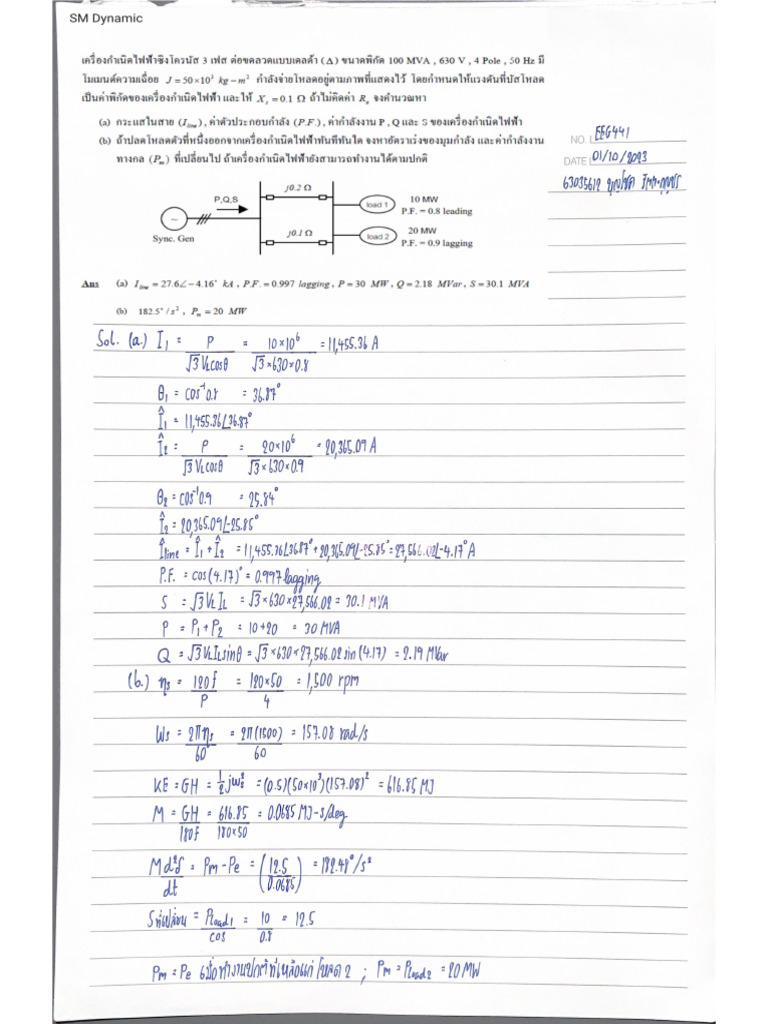 SM Dynamic
เครื่องกำเนิดไฟฟ้าซิงโครนัส 3 เฟส ต่อขดลวดแบบเดลต้า (Δ) ขนาดพิกัด 100 MVA , 630 V , 4 Pole , 50 Hz มี
โมเมนต์ความเฉื่อย J = 50×10³ kg − m² กำลังจ่ายโหลดอยู่ตามภาพที่แสดงไว้ โดยกำหนดให้แรงดันที่บัสโหลด
เป็นค่าพิกัดของเครื่องกำเนิดไฟฟ้า และให้ Xs = 0.1 Ω ถ้าไม่คิดค่า Ra จงคำนวณหา
(a) กระแสในสาย (Iline) , ค่าตัวประกอบกำลัง (P.F.) , ค่ากำลังงาน P , Q และ S ของเครื่องกำเนิดไฟฟ้า
(b) ถ้าปลดโหลดตัวที่หนึ่งออกจากเครื่องกำเนิดไฟฟ้าทันทีทันใด จงหาอัตราเร่งของมุมกำลัง และค่ากำลังงาน
ทางกล (Pm) ที่เปลี่ยนไป ถ้าเครื่องกำเนิดไฟฟ้ายังสามารถทำงานได้ตามปกติ
NO. EEG441
DATE 01/10/2023
63035612
P,Q,S
~
Sync. Gen
j0.2 Ω
j0.1 Ω
load 1
10 MW
P.F. = 0.8 leading
load 2
20 MW
P.F. = 0.9 lagging
Ans (a) Iline = 27.6∠−4.16° kA , P.F. = 0.997 lagging , P = 30 MW , Q = 2.18 MVar , S = 30.1 MVA
(b) 182.5°/s² , Pm = 20 MW
Sol. (a.) I1 = P/(√3 VL cosθ) = 10×10⁶/(√3×630×0.8) = 11,455.36 A
θ1 = cos⁻¹0.8 = 36.87°
Î1 = 11,455.36∠36.87°
Î2 = P/(√3 VL cosθ) = 20×10⁶/(√3×630×0.9) = 20,365.09 A
θ2 = cos⁻¹0.9 = 25.84°
Î2 = 20,365.09∠-25.85°
Îline = Î1 + Î2 = 11,455.36∠36.87° + 20,365.09∠-25.85° = 27,566.02∠-4.17° A
P.F. = cos(4.17)° = 0.997 lagging
S = √3 VL IL = √3×630×27,566.02 = 30.1 MVA
P = P1+P2 = 10+20 = 30 MVA
Q = √3 VL IL sinθ = √3×630×27,566.02 sin(4.17) = 2.19 MVar
(b.) ηs = 120f/P = 120×50/4 = 1,500 rpm
Ws = 2πηs/60 = 2π(1500)/60 = 157.08 rad/s
KE = GH = ½jws² = (0.5)(50×10³)(157.08)² = 616.85 MJ
M = GH/180f = 616.85/180×50 = 0.0685 MJ-s/deg
M d²δ/dt = Pm - Pe = (12.5/0.0685) = 182.48°/s²
Sที่เปลี่ยน = Pload1/cos = 10/0.8 = 12.5
Pm = Pe เมื่อทำงานปกติที่เหลือแค่โหลด 2 ; Pm = Pload2 = 20 MW